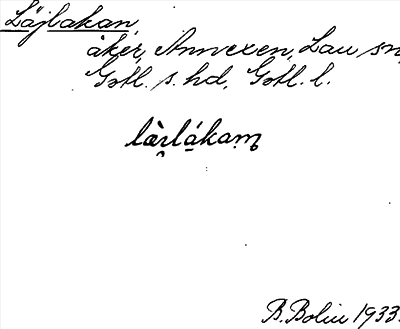 Läjlakan,
åker, Annexen, Lau sn,
Gotl. s. hd, Gotl. l.
lɑ̀ɪlákam
B. Bolin 1933.